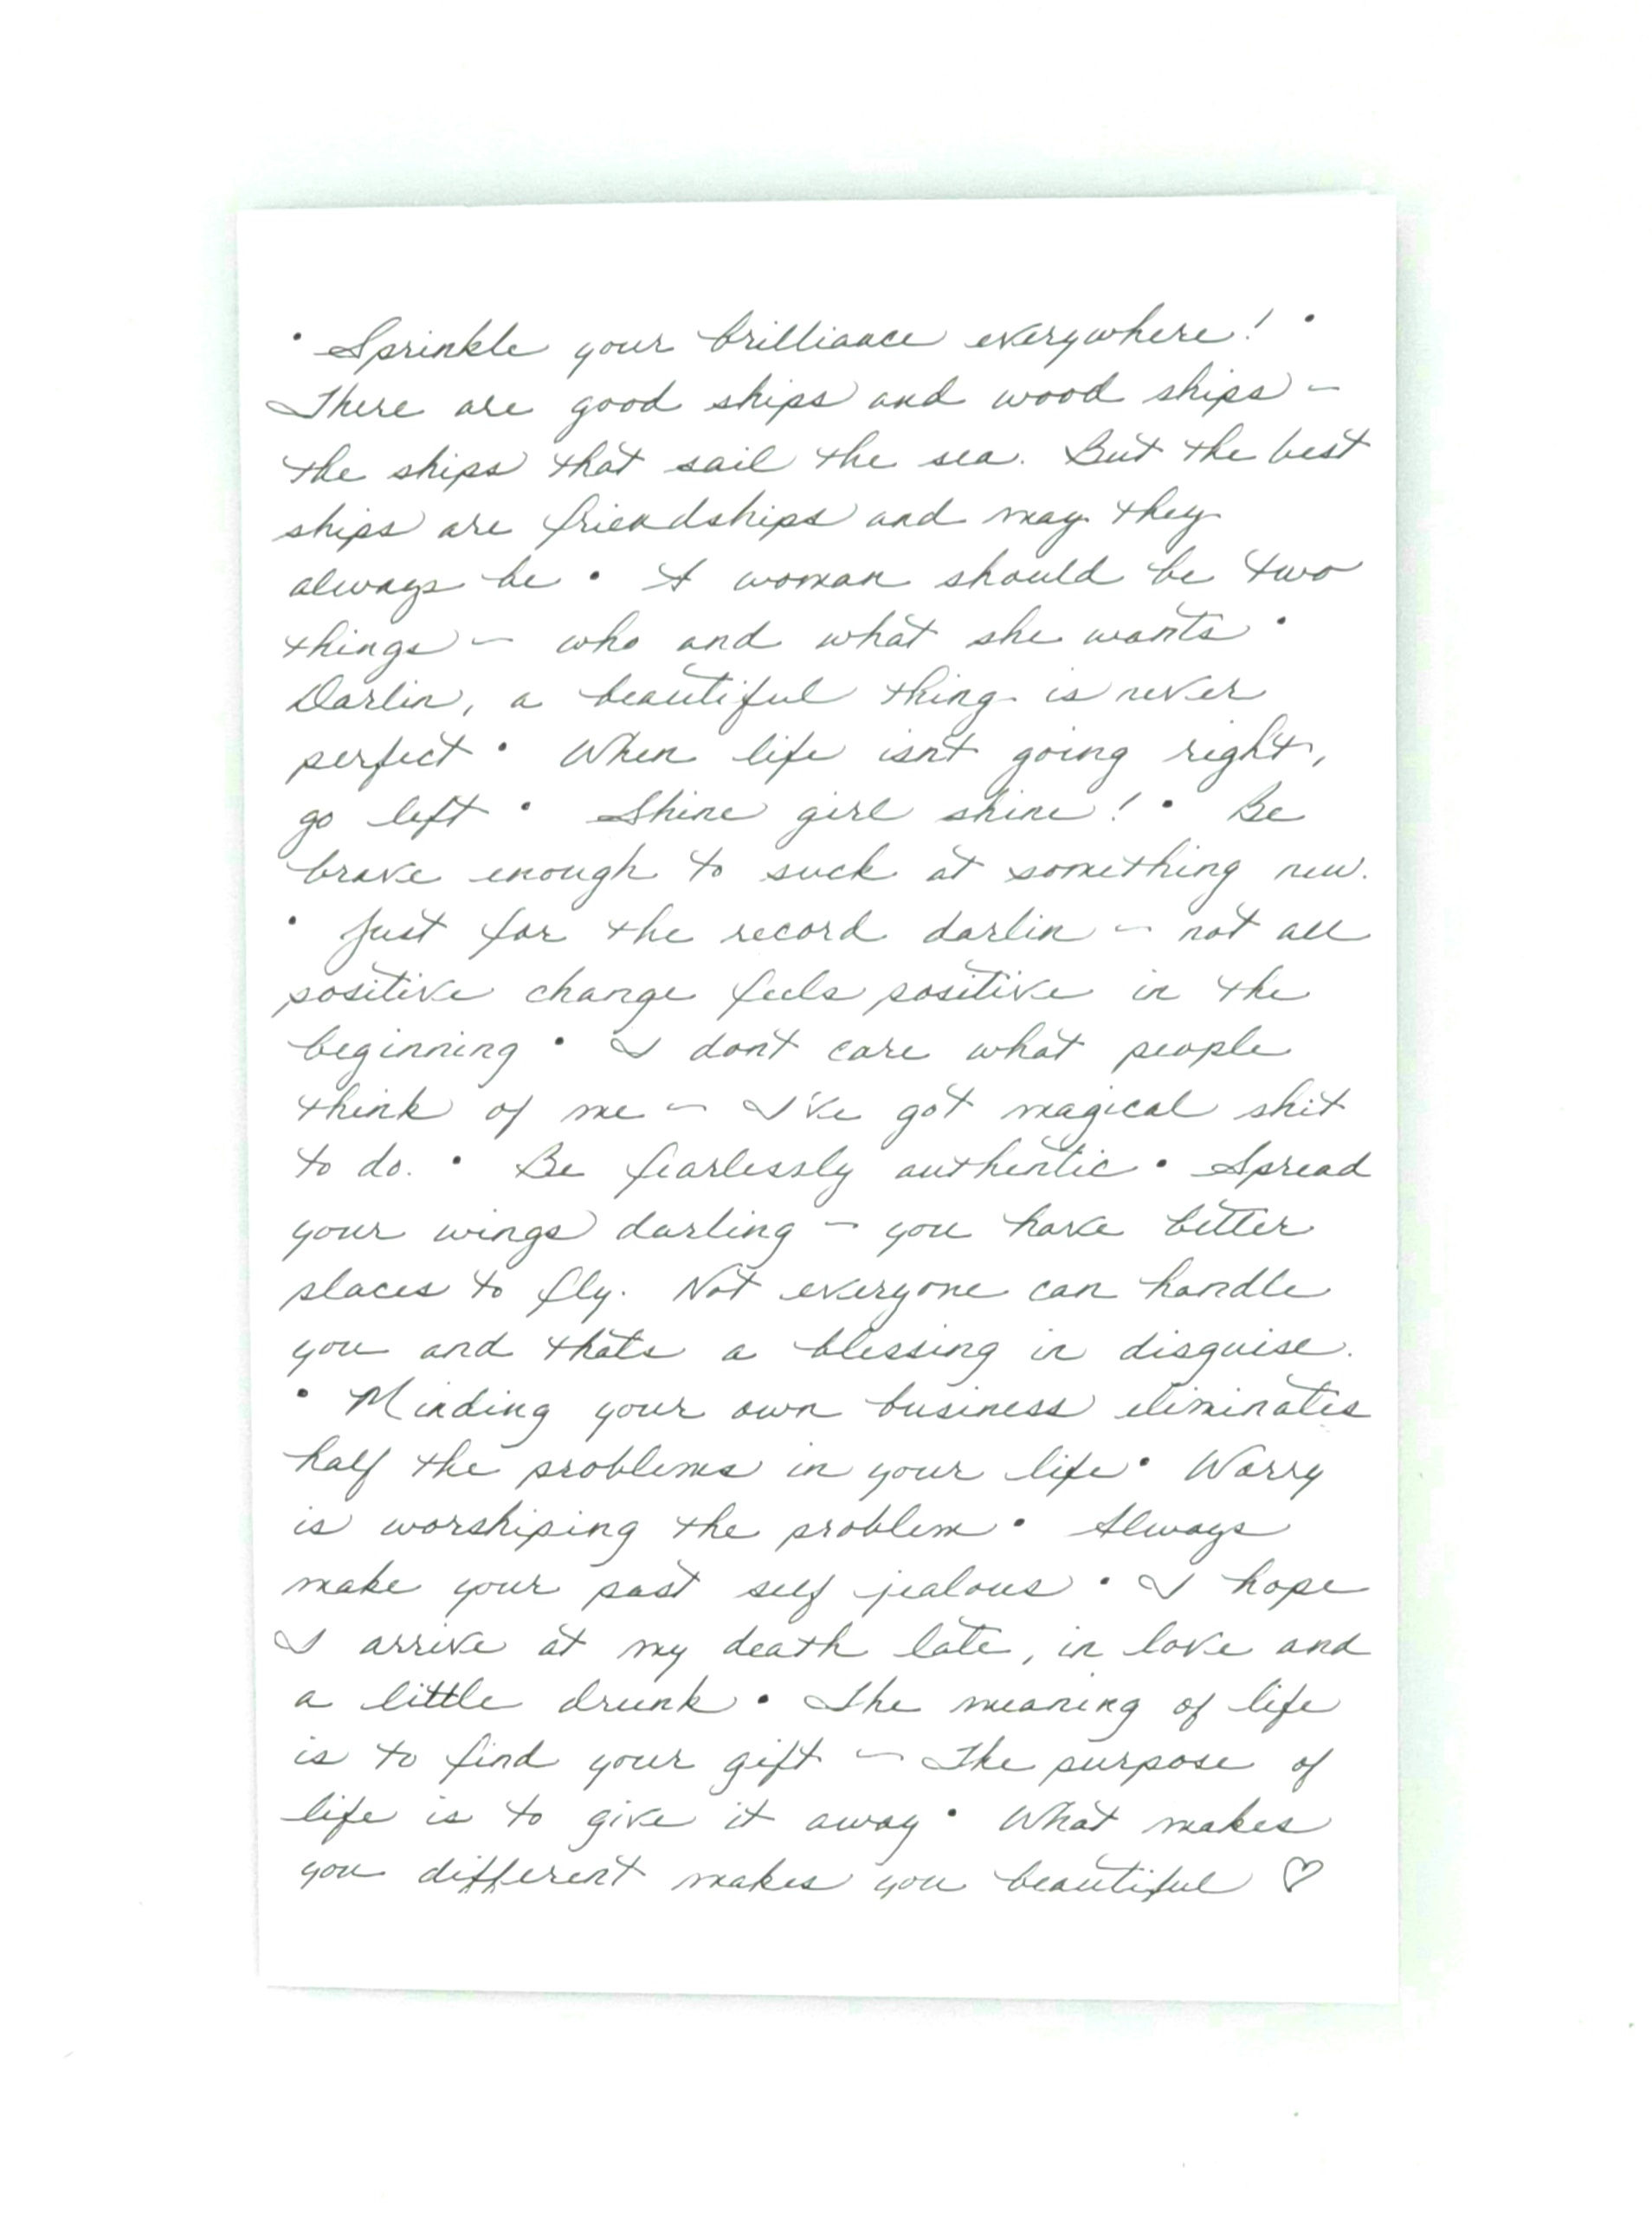 • Sprinkle your brilliance everywhere! •
There are good ships and wood ships -
the ships that sail the sea. But the best
ships are friendships and may they
always be • A woman should be two
things - who and what she wants •
Darlin, a beautiful thing is never
perfect • When life isnt going right,
go left • Shine girl shine! • Be
brave enough to suck at something new.
• Just for the record darlin - not all
positive change feels positive in the
beginning • I dont care what people
think of me - I've got magical shit
to do. • Be fearlessly authentic • Spread
your wings darling - you have better
places to fly. Not everyone can handle
you and thats a blessing in disguise.
• Minding your own business eliminates
half the problems in your life • Worry
is worshiping the problem • Always
make your past self jealous • I hope
I arrive at my death late, in love and
a little drunk • The meaning of life
is to find your gift - The purpose of
life is to give it away • What makes
you different makes you beautiful ♡